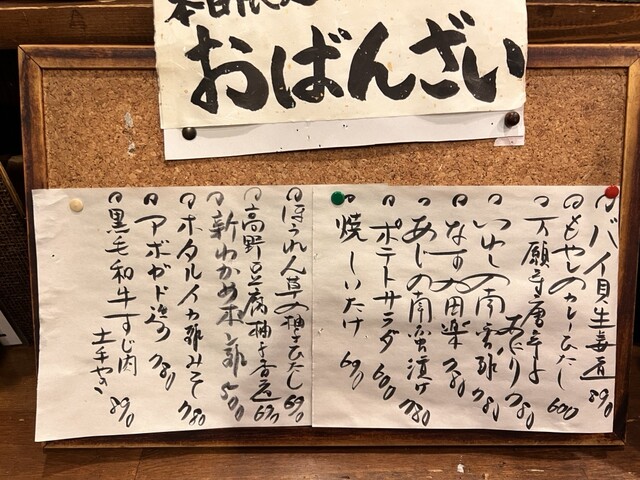 本日限定
おばんざい
バイ貝生姜煮 890
もやしのカレーひたし 600
万願寺唐辛子
あぶり 780
いわしの南蛮 780
なす田楽 780
あじの南蛮漬け 780
ポテトサラダ 600
焼しいたけ 690
ほうれん草の柚子ひたし 690
高野豆腐柚子香煮 690
新わかめポン酢 500
ホタルイカ酢みそ 780
アボガド 780
黒毛和牛すじ肉
土手やき 890